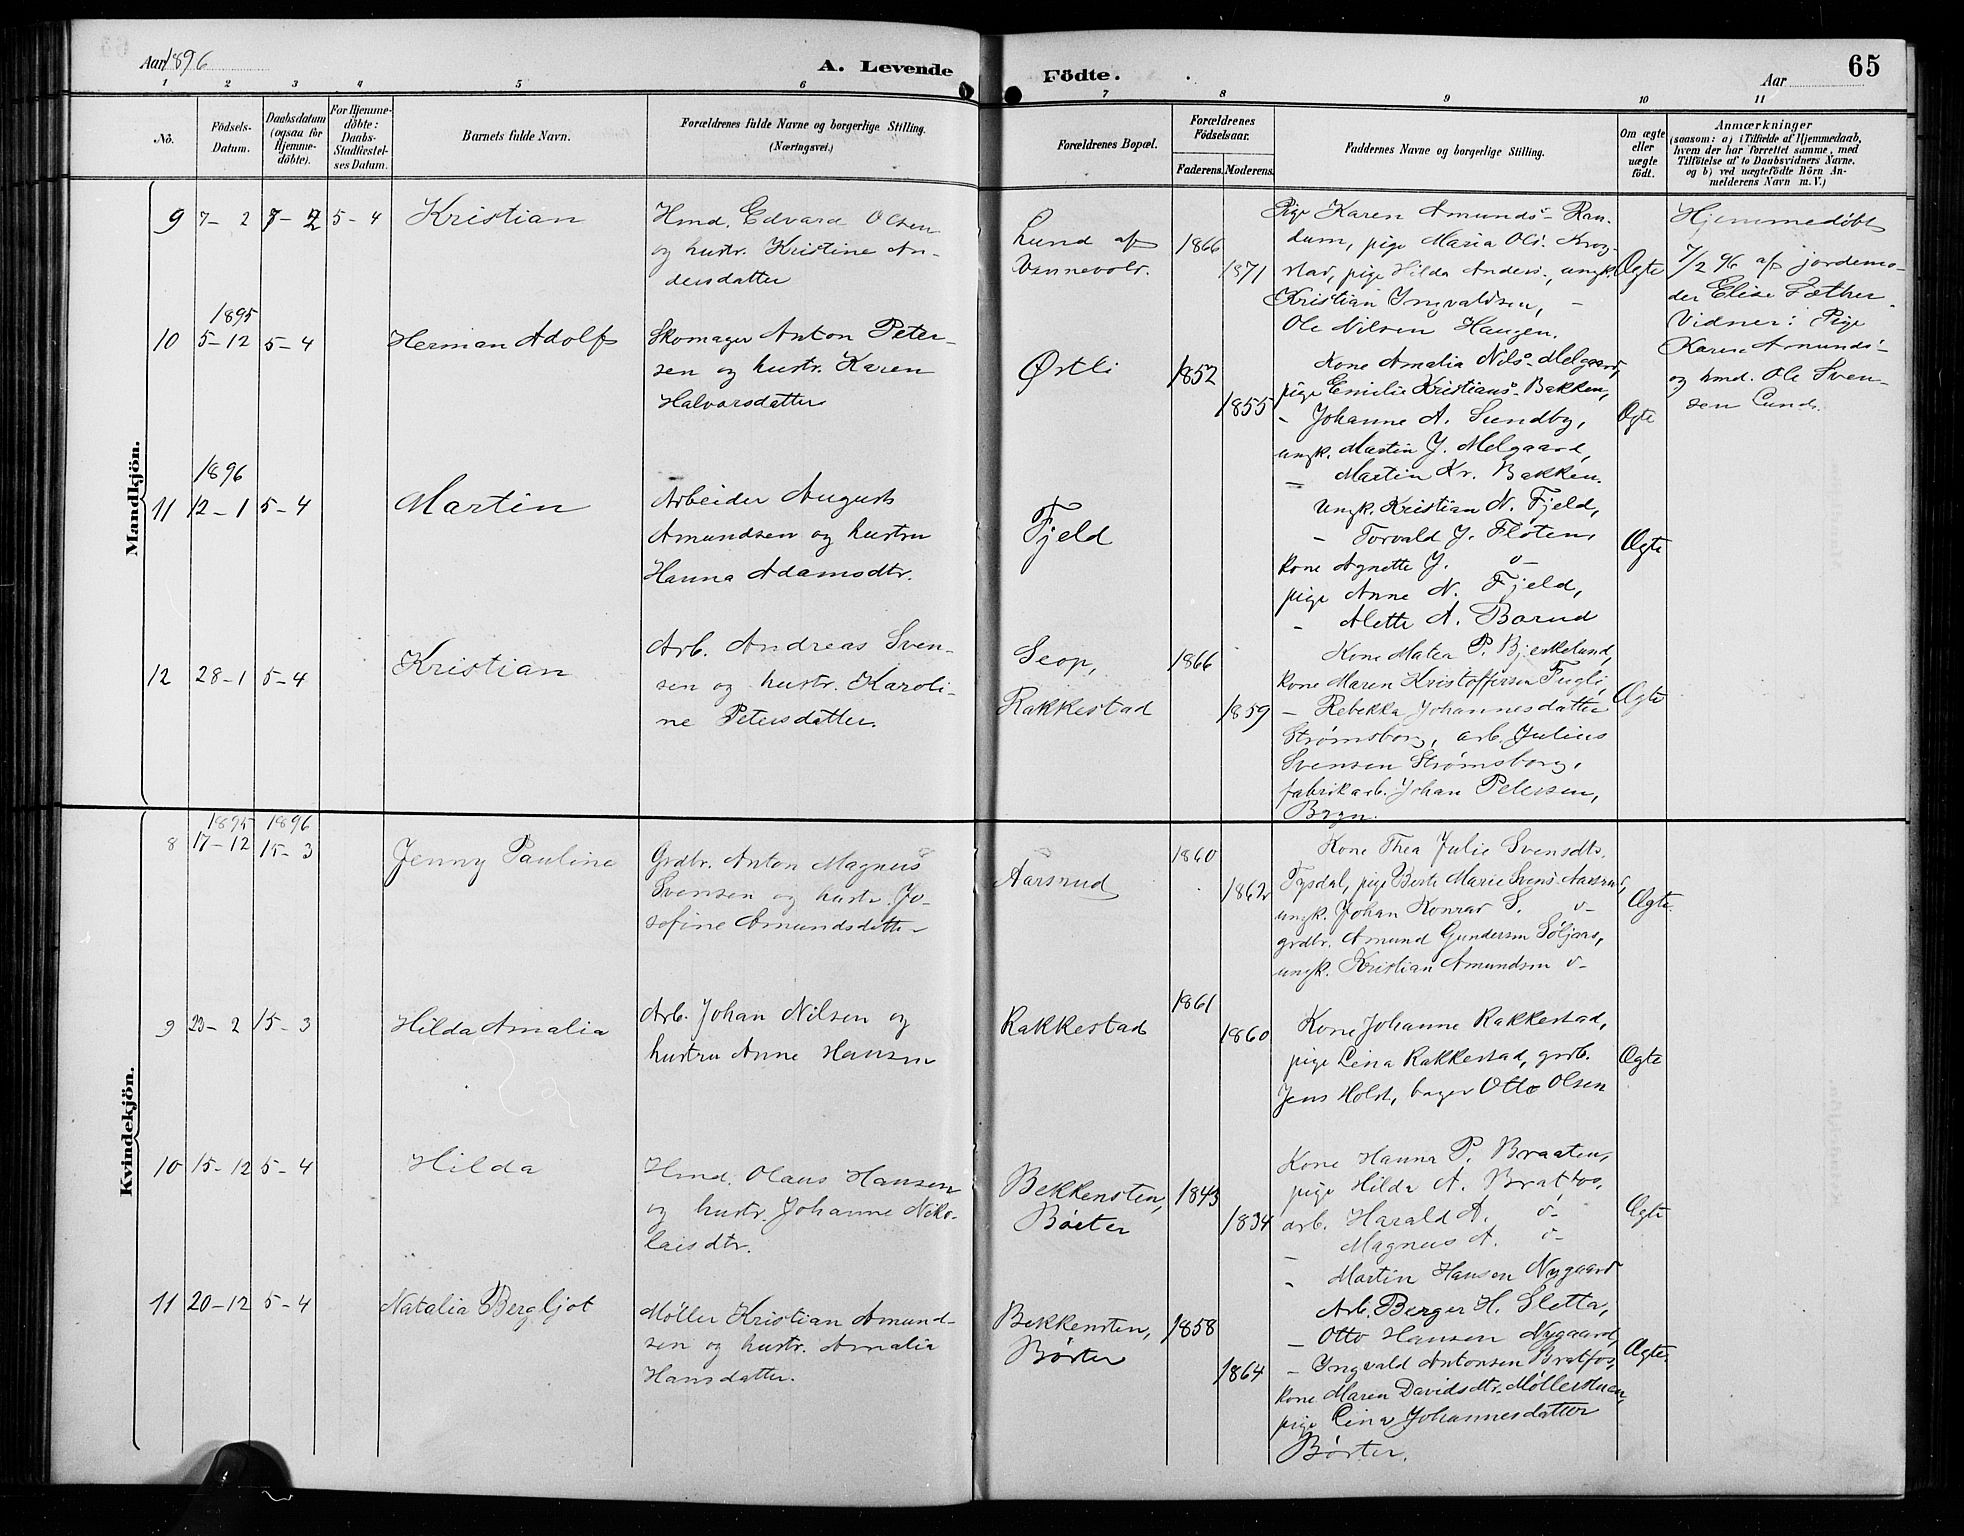 Aar 1896
A. Levende
Födte.
Aar
65
1 2 3 4 5 6 7 8 9 10 11
No.
Födsels-
Datum.
Daabsdatum
(ogsaa för
Hjemme-
döbte).
For Hjemme-
döbte:
Daabs-
Stadfæstel-
ses Datum.
Barnets fulde Navn.
Forældrenes fulde Navne og borgerlige Stilling.
(Næringsvei.)
Forældrenes Bopæl.
Forældrenes
Födselsaar.
Faderens. Moderens.
Faddernes Navne og borgerlige Stilling.
Om ægte
eller
uægte
födt.
Anmærkninger
(saasom: a) i Tilfælde af Hjemmedaab,
hvem der har forrettet samme, med
Tilföielse af to Daabsvidners Navne,
og b) ved uægtefödte Börn An-
melderens Navn m. V.)
Mandkjön.
9 7-2 7-2 5-4
Kristian
Hmd. Edvard Olsen
og hustr. Kristine An-
dersdatter
Lund af
Vennevold.
1866
1871
Pige Karen Amunds- Ran-
dum, pige Maria Ols. Krog-
stad, pige Hilda Anders., ungk.
Kristian Yngvaldsen,
Ole Nilsen Haugen.
Ægte
Hjemmedøbt
7/2 96 af jordemo-
der Elise Sæther.
Vidner: Pige
Karen Amunds-
og hmd. Ole Sven-
sen Lund.
1895
10 5-12 5-4
Herman Adolf
Skomager Anton Peter-
sen og hustr. Karen
Halvorsdatter
Østli
1852
1855
Kone Amalia Nils- Melgaard,
pige Emilie Kristians- Bakken,
- Johanne A. Sundby,
ungk. Martin J. Melgaard,
- Martin Kr. Bakken.
Ægte
1896
11 12-1 5-4
Martin
Arbeider August
Amundsen og hustru
Hanna Adamsdtr.
Fjeld
Ungk. Kristian N. Fjeld,
- Torvald J. Fløten,
kone Agnette J. v-
pige Anne N. Fjeld,
- Alette A. Borud
Ægte
12 28-1 5-4
Kristian
Arb. Andreas Sven-
sen og hustr. Karoli-
ne Petersdatter.
Seop,
Rakkestad
1866
1859
Kone Matea P. Bjerkelund,
kone Maren Kristoffersen Fugli,
- Rebekka Johannesdatter
Strømsborg, arb. Julius
Svensen Strømsborg,
fabrikarb. Johan Petersen,
Bryn.
Ægte
Kvindekjön.
1895 1896
8 17-12 15-3
Jenny Pauline
Grdbr. Anton Magnus
Svensen og hustr. Jo-
sefine Amundsdatter
Aarsrud
1860
1862
Kone Thea Julie Svensdtr.
Tysdal, pige Berte Marie Svens- Aarsrud,
ungk. Johan Konrad S. v-
grdbr. Amund Gundersen Søljaas,
ungk. Kristian Amundsen v-
Ægte.
9 23-2 15-3
Hilda Amalia
Arb. Johan Nilsen og
hustru Anne Hansen
Rakkestad
1861
1860
Kone Johanne Rakkestad,
pige Lina Rakkestad, grdb.
Jens Holst, bager Otto Olsen
Ægte
10 15-12 5-4
Hilda
Hmd. Olaus Hansen
og hustr. Johanne Niko-
laisdtr.
Bekkensten,
Børter
1843
1834
Kone Hanna P. Braaten,
pige Hilda A. Bratfos,
arb. Harald A. v-
- Magnus A. v-
- Martin Hansen Nygaard
Ægte
11 20-12 5-4
Natalia Bergljot
Møller Kristian Amund-
sen og hustr. Amalia
Hansdatter.
Bekkensten,
Børter
1858
1864
Arb. Berger H. Sletta,
- Otto Hansen Nygaard,
- Yngvald Antonsen Bratfos,
kone Maren Davidsdtr. Møllerstuen,
pige Lina Johannesdatter
Børter.
Ægte.